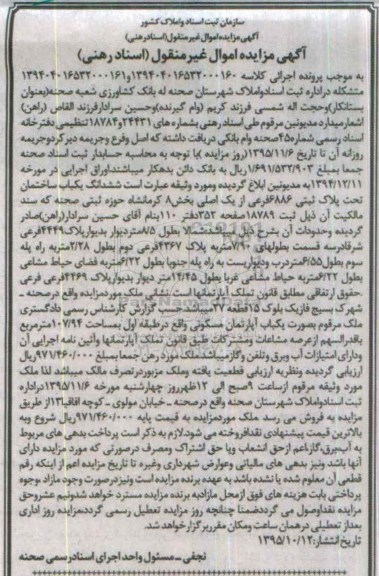 سازمان ثبت اسناد واملاک کشور
آگهی مزایده اموال غیرمنقول(اسنادرهنی)
آگهی مزایده اموال غیرمنقول (اسناد رهنی)
به موجب پرونده اجرائی کلاسه ۱۳۹۴۰۴۰۱۶۵۳۲۰۰۰۱۶۰و۱۳۹۴۰۴۰۱۶۵۳۲۰۰۰۱۶۱
متشکله دراداره ثبت اسنادواملاک شهرستان صحنه له بانک کشاورزی شعبه صحنه(بعنوان
بستانکار)وحجت اله شمسی فرزند کریم (وام گیرنده)وحسین سرادارفرزند القاص (راهن)
اشعارمیدارد مدیونین مرقوم طی اسناد رهنی بشماره های ۲۴۴۳۱و۱۸۷۸۴تنظیمی دفترخانه
اسناد رسمی شماره۴۵صحنه وام بانکی دریافت داشته که اصل وفرع وجریمه دیرکردوجریمه
روزانه آن تا تاریخ ۱۳۹۵/۱۱/۶(روز مزایده )با توجه به محاسبه حسابدار ثبت اسناد صحنه
جمعا بمبلغ ۱/۶۹۱/۵۳۳/۹۰۳ریال به بانک دائن بدهکار میباشندواوراق اجرایی در مورخه
۱۳۹۴/۱۲/۱۱به مدیونین ابلاغ گردیده ومورد وثیقه عبارت است ششدانگ یکباب ساختمان
تحت پلاک ثبتی ۶۸۸۶فرعی از یک اصلی بخش۸ کرمانشاه حوزه ثبتی صحنه که سند
مالکیت آن ذیل ثبت ۱۸۷۸۹صفحه ۳۵۲دفتر ۱۱۰بنام آقای حسین سرادار(راهن)صادر
گردیده وحدودات آن بشرح ذیل میباشدشمالا بطول ۸/۵متردیوار بدیوارپلاک۴۴۴۹فرعی
شرقادرسه قسمت بطولهای ۷/۹۰متربه پلاک ۴۳۶۷فرعی دوم بطول ۲/۲۸متربه راه پله
سوم بطول۶/۵۵متردرب ودیواریست به راه پله جنوبا بطول ۶/۲۲متربه فضای حیاط مشاعی
بطول ۶/۲۲متربه حیاط مشاعی غربا بطول ۱۴/۴۵متر دیوار بدیوارپلاک ۴۴۶۹فرعی فرعی
.حقوق ارتفاقی مطابق قانون تملک آپارتمانها است نشانی ملک موردمزایده واقع درصحنه ـ
شهرک بسیج فازیک بلوک ۱۵قطعه ۳۷میباشدحسب گزارش کارشناس رسمی دادگستری
ملک مرقوم بصورت یکباب آپارتمان مسکونی واقع درطبقه اول بمساحت ۱۰۷/۹۴مترمربع
باقدرالسهم ازعرصه مشاعات ومشترکات طبق قانون تملک آپارتمانها وآئین نامه اجرایی آن
ودارای امتیازات آب وبرق وتلفن وگازمیباشدملک مورد رهن جمعا بمبلغ ۹۷۱/۴۶۰/۰۰۰ریال
ارزیابی گردیده ونظریه ارزیابی قطعیت یافته وملک مزبوردرتصرف مالک میباشد لذا ملک
مورد وثیقه مرقوم ازساعت ۹صبح الی ۱۲ظهرروز چهارشنبه مورخه ۱۳۹۵/۱۱/۶دراداره
ثبت اسنادواملاک شهرستان صحنه واقع درصحنه ـ خیابان مولوی ـ کوچه اقاقیا۱۳از طریق
مزایده به فروش می رسد ملک موردمزایده به قیمت پایه ۹۷۱/۴۶۰/۰۰۰ریال شروع وبه
بالاترین قیمت پیشنهادی نقدافروخته می شود.لازم به ذکر است پرداخت بدهی های مربوط
به آب،برق،گازاعم ازحق انشعاب ویا حق اشتراک ومصرف درصورتی که مورد مزایده دارای
آنها باشد ونیز بدهی های مالیاتی وعوارض شهرداری وغیره تا تاریخ مزایده اعم از اینکه رقم
قطعی آن معلوم شده یا نشده باشد به عهده برنده مزایده است ونیزدرصورت وجود مازاد ،وجوه
پرداختی بابت هزینه های فوق ازمحل مازادبه برنده مزایده مسترد خواهد شدونیم عشروحق
مزایده نقداوصول می گرددضمنا چنانچه روز مزایده تعطیل رسمی گرددمزایده روز اداری
بعداز تعطیلی درهمان ساعت ومکان مقرربرگزارخواهد شد.
تاریخ انتشار:۱۳۹۵/۱۰/۱۲
نجفی ـ مسئول واحد اجرای اسنادرسمی صحنه